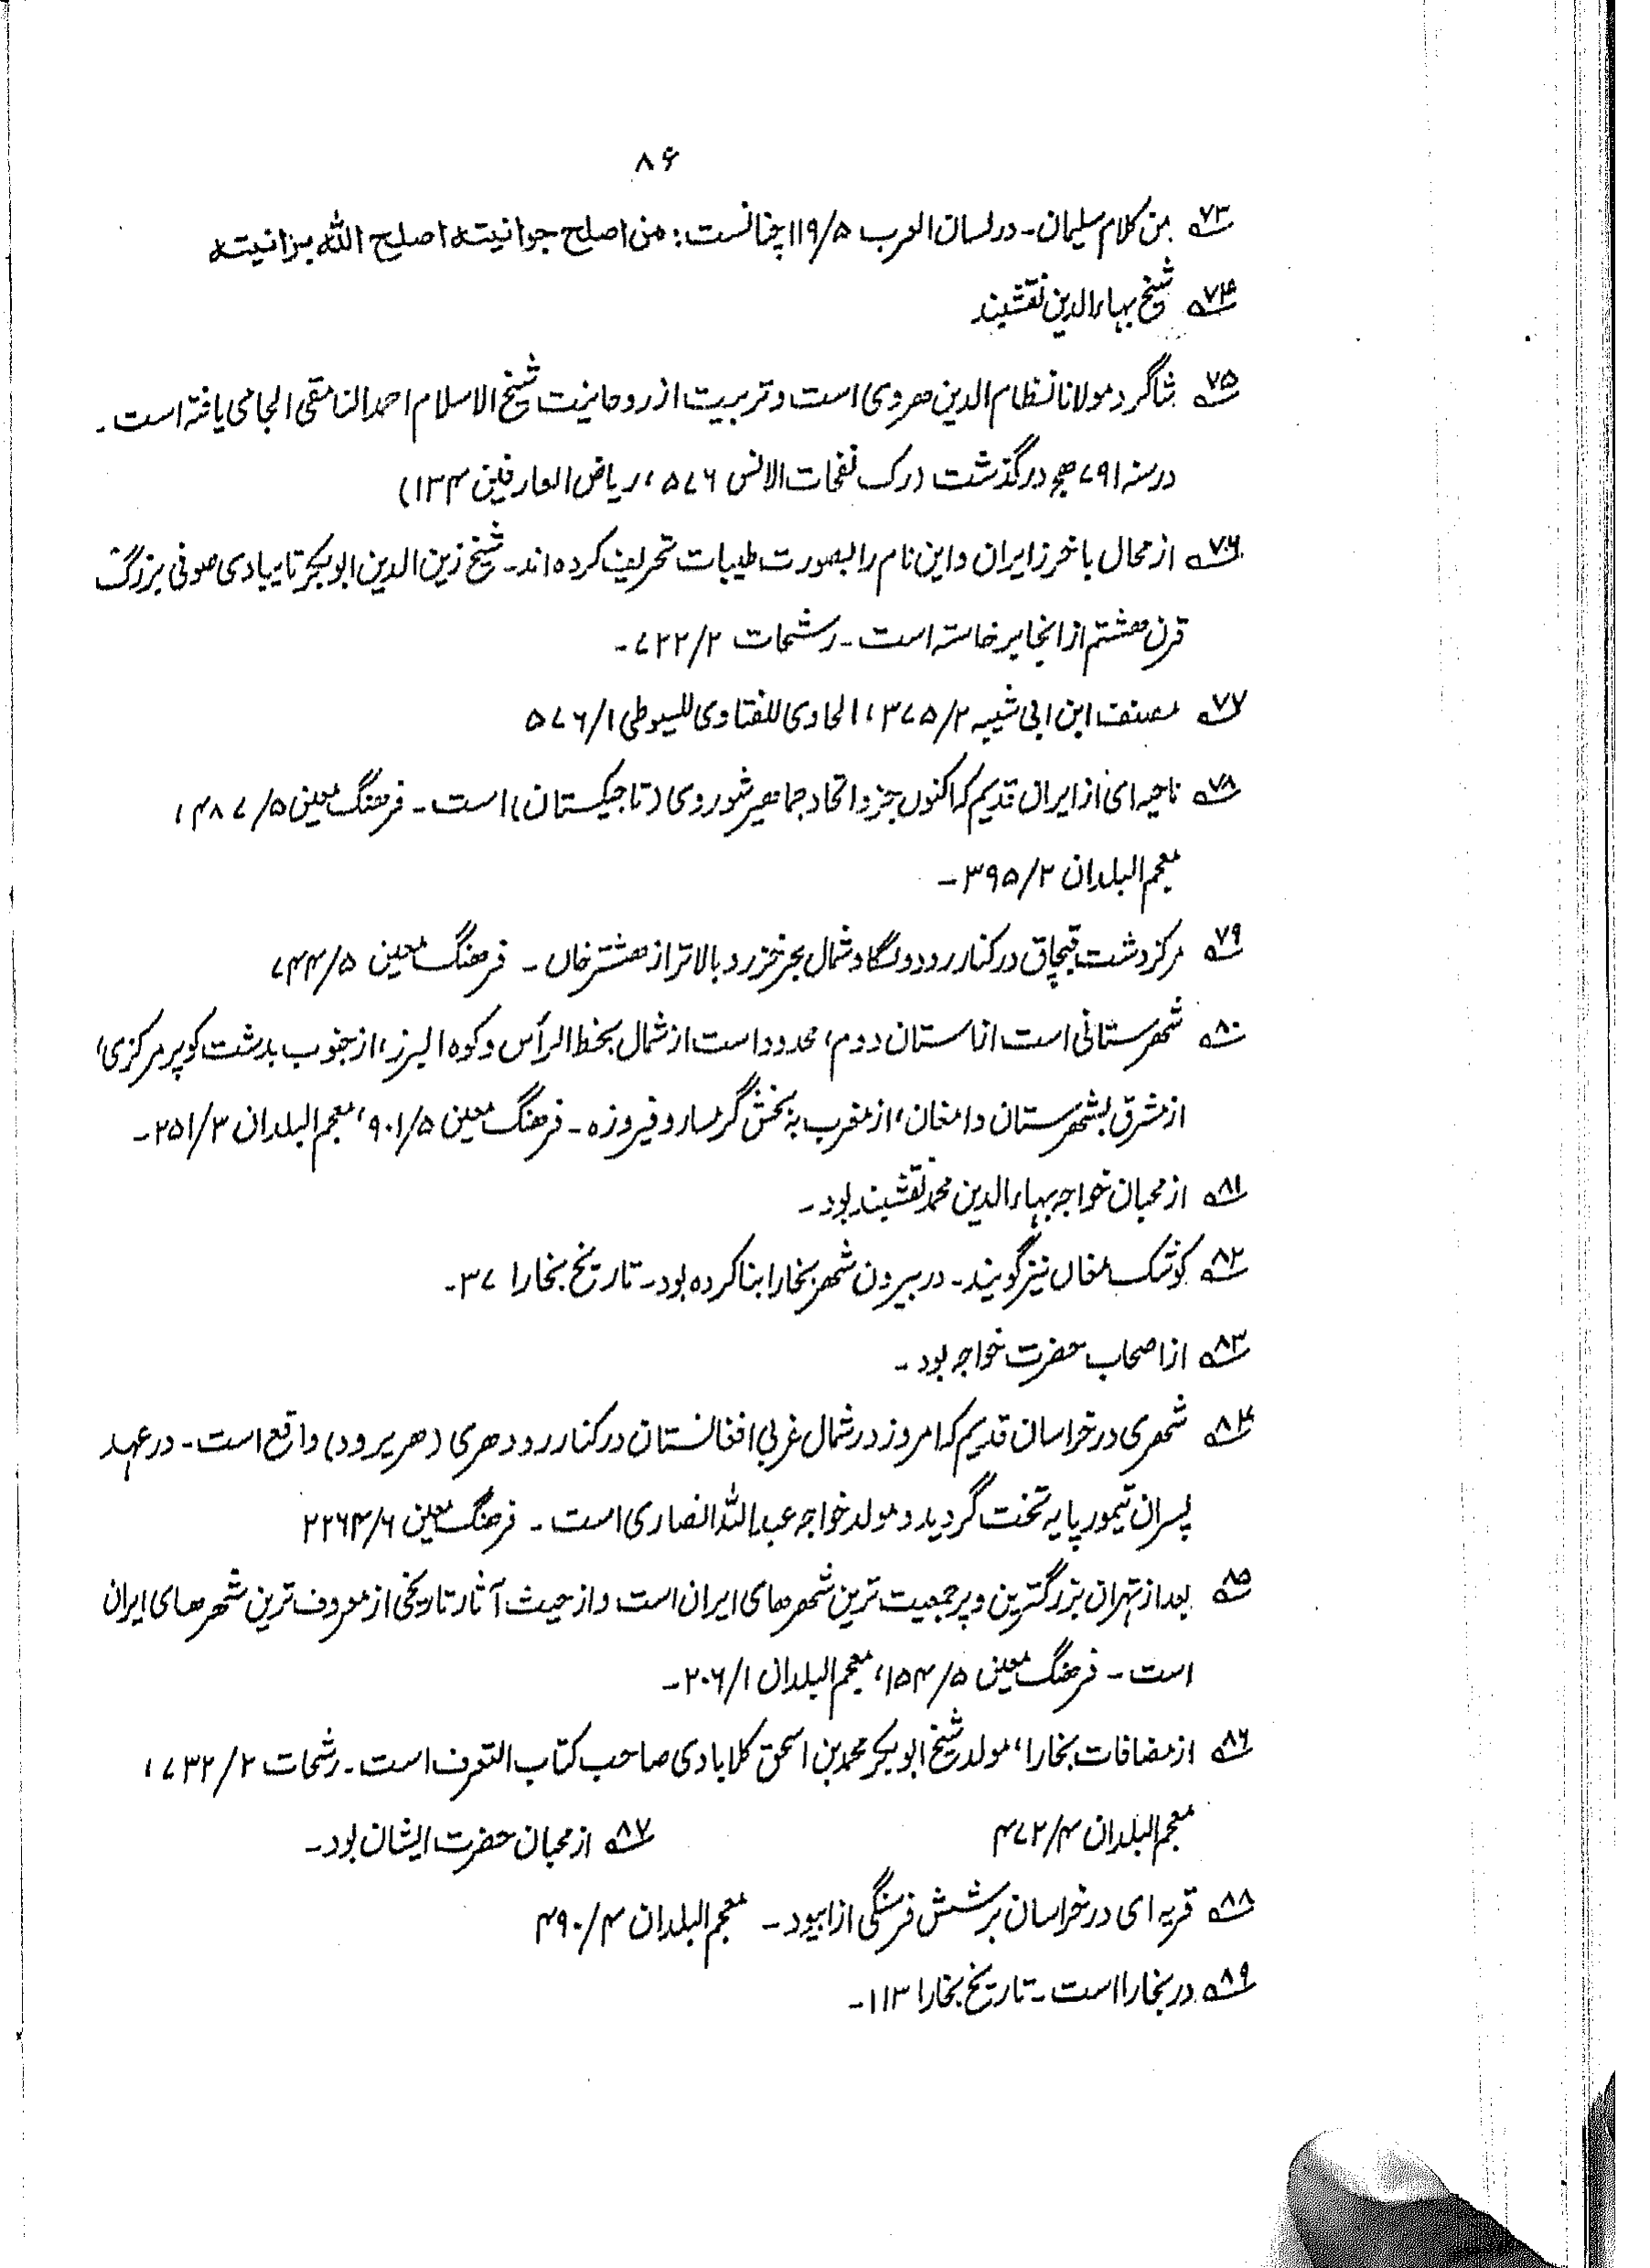 ۸۶
۷۳ من کلام سلیمان - در لسان العرب ۱۱۹/۵ چنانست: من اصلح جوانیته اصلح الله برانیته
۷۴ شیخ بهاءالدین نقشبند
۷۵ شاگرد مولانا نظام الدین هروی است و تربیت از روحانیت شیخ الاسلام احمد النامقی الجامی یافته است -
در سنه ۷۹۱ هج در گذشت (رک نفحات الانس ۵۷۶، ریاض العارفین ۱۳۴)
۷۶ از محال باخرز ایران و این نام را بصورت طیبات تحریف کرده اند - شیخ زین الدین ابوبکر تایبادی صوفی بزرگ
قرن هشتم از اینجا برخاسته است - رشحات ۷۲۲/۲ -
۷۷ مصنف ابن ابی شیبه ۳۷۵/۲، الحاوی للفتاوی للسیوطی ۵۷۶/۱
۷۸ ناحیه ای از ایران قدیم که اکنون جزو اتحاد جماهیر شوروی (تاجیکستان) است - فرهنگ معین ۴۸۷/۵،
معجم البلدان ۳۹۵/۲ -
۷۹ مرکز دشت قبچاق در کنار رود ولگا و شمال بحر خزر و بالاتر از هشترخان - فرهنگ معین ۷۴۴/۵
۸۰ شهرستانی است از استان دوم، محدود است از شمال بخط الرأس و کوه البرز، از جنوب بدشت کویر مرکزی،
از مشرق بشهرستان دامغان، از مغرب به بخش گرمسار و فیروزه - فرهنگ معین ۹۰۱/۵، معجم البلدان ۲۵۱/۳ -
۸۱ از محبان خواجه بهاءالدین محمد نقشبند بود -
۸۲ کوشک مغان نیز گویند - در بیرون شهر بخارا بنا کرده بود - تاریخ بخارا ۳۷ -
۸۳ از اصحاب حضرت خواجه بود -
۸۴ شهری در خراسان قدیم که امروز در شمال غربی افغانستان در کنار رود هری (هریرود) واقع است - در عهد
پسران تیمور پایه تخت گردید و مولد خواجه عبدالله انصاری است - فرهنگ معین ۲۲۶۴/۶
۸۵ بعد از تهران بزرگترین و پرجمعیت ترین شهرهای ایران است و از حیث آثار تاریخی از معروف ترین شهرهای ایران
است - فرهنگ معین ۱۵۴/۵، معجم البلدان ۲۰۶/۱ -
۸۶ از مضافات بخارا، مولد شیخ ابوبکر محمد بن اسحق کلابادی صاحب کتاب التعرف است - رشحات ۷۳۲/۲،
معجم البلدان ۴۷۲/۴ ۸۷ از محبان حضرت ایشان بود -
۸۸ قریه ای در خراسان بر شش فرسنگی از ابیورد - معجم البلدان ۴۹۰/۴
۸۹ در بخارا است - تاریخ بخارا ۱۱۳ -